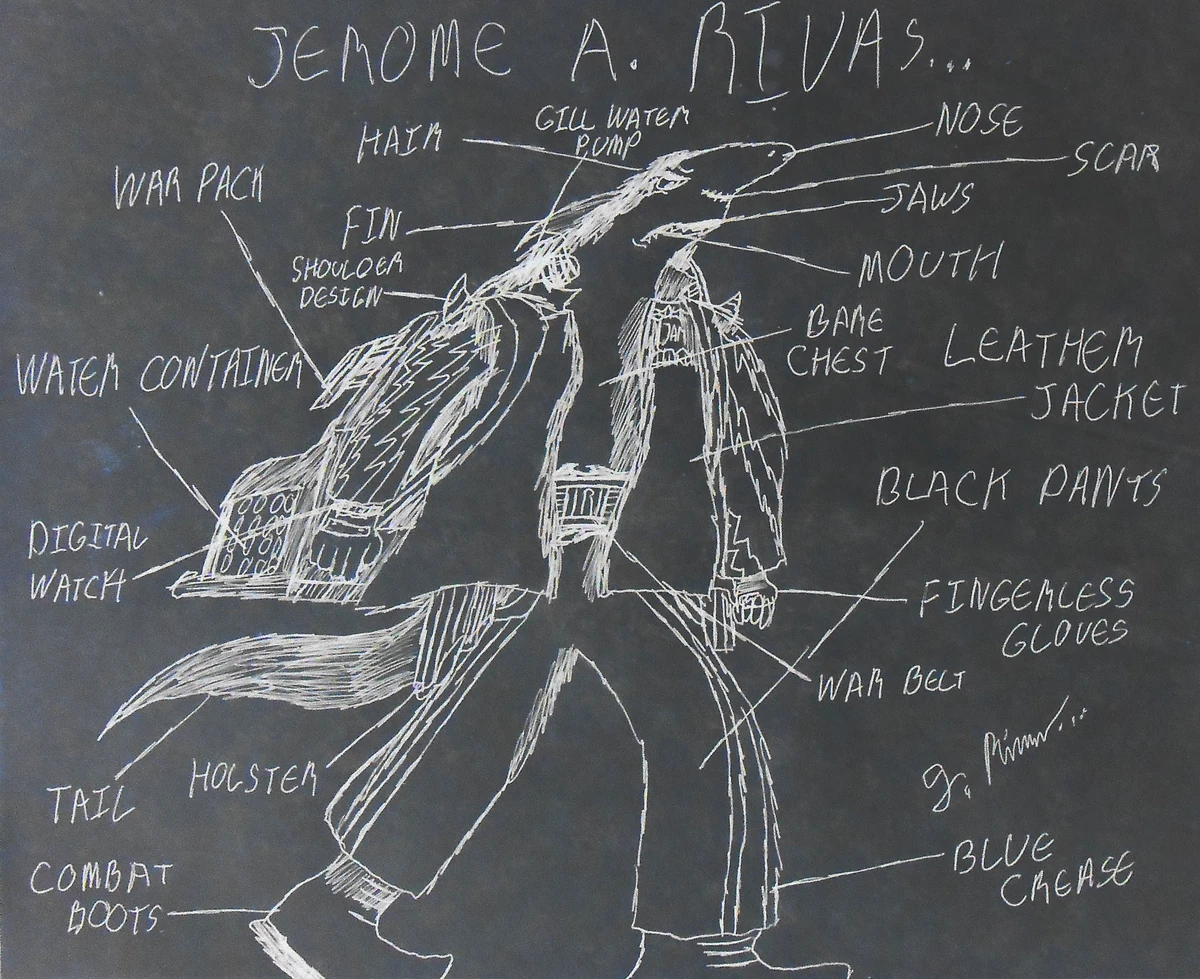 JEROME A. RIVAS...
GILL WATER
PUMP
HAIR
NOSE
SCAR
WAR PACK
JAWS
FIN
SHOULDER
DESIGN
MOUTH
BARE
CHEST
LEATHER
JACKET
WATER CONTAINER
BLACK PANTS
DIGITAL
WATCH
FINGERLESS
GLOVES
WAR BELT
HOLSTER
TAIL
BLUE
CREASE
COMBAT
BOOTS